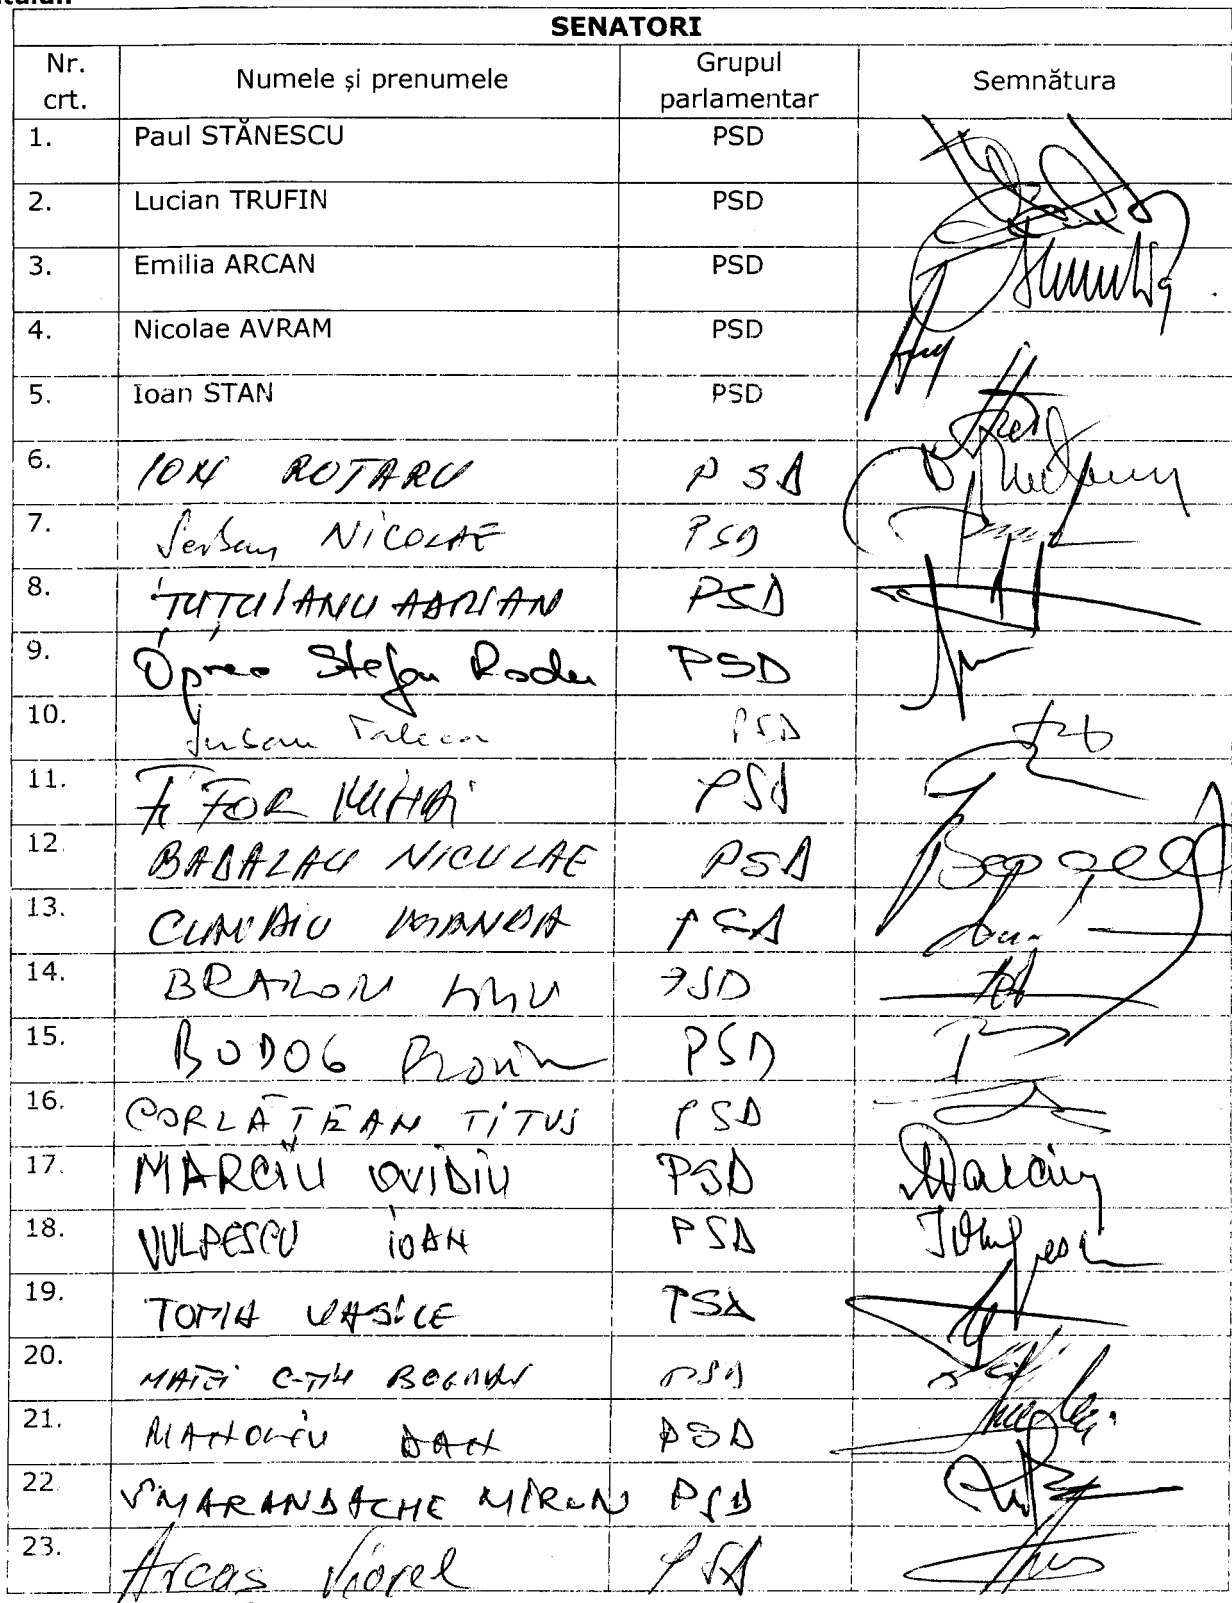 SENATORI
Nr. crt. Numele și prenumele Grupul parlamentar Semnătura
1. Paul STĂNESCU PSD
2. Lucian TRUFIN PSD
3. Emilia ARCAN PSD
4. Nicolae AVRAM PSD
5. Ioan STAN PSD
6. ION ROTARU PSD
7. Serban NICOLAE PSD
8. TUȚUIANU ADRIAN PSD
9. Oprea Stefan Radu PSD
10. PSD
11. FIFOR MIHAI PSD
12. BADALAU NICULAE PSD
13. CLAUDIU MANDA PSD
14. PSD
15. BODOG Florian PSD
16. CORLĂȚEAN TITUS PSD
17. MARCIU OVIDIU PSD Marciu
18. VULPESCU IOAN PSD
19. TOMA VASILE PSD
20. MATEI C-TIN BOGDAN PSD
21. MANOLIU DAN PSD
22. SMARANDACHE MIRON PSD
23. Arcas Viorel PSD